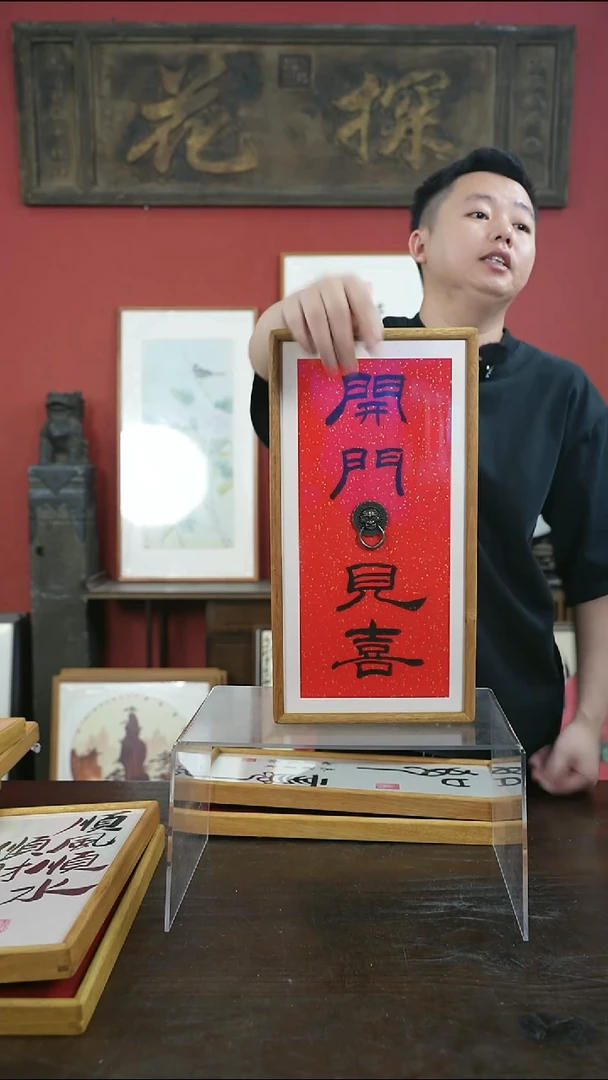 探花
開門
見喜
順風
順水
順財